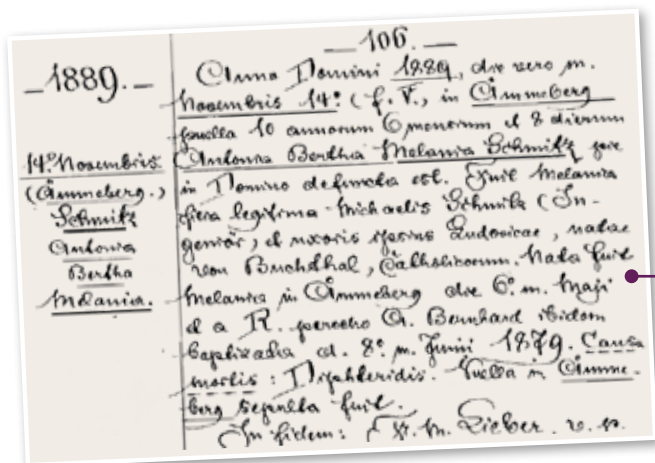 —1889.—
14.º Novembris
(Ammeberg.)
Schmitz
Antonia
Bertha
Melania.
—106.—
Anno Domini 1889, die vero m.
Novembris 14º (f. V., in Ammeberg
puella 10 annorum 6 mensium et 8 dierum
Antonia Bertha Melania Schmitz pie
in Domino defuncta est. Fuit Melania
filia legitima Michaelis Schmitz (In-
geniör, et uxoris ipsius Ludovicae, natae
von Buchsthal, Catholicorum. Nata fuit
Melania in Ammeberg die 6º m. Maji
et a R. parocho A. Bernhard ibidem
baptizata d. 8º m. Junii 1879. Causa
mortis: Diphteridis. Puella in Amme-
berg sepulta fuit.
In fidem: Lieber. v. p.